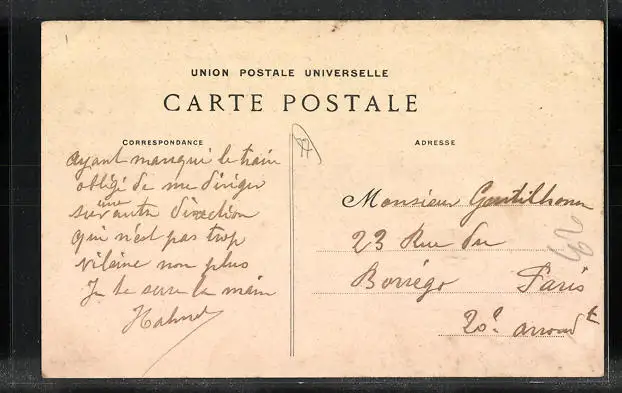 UNION POSTALE UNIVERSELLE
CARTE POSTALE
CORRESPONDANCE
ADRESSE
Ayant manqué le train
obligé de me diriger
sur une autre direction
qui n'est pas trop
vilaine non plus
Je te serre la main
Monsieur Gentilhomme
23 Rue du
Borrégo Paris
20e arrondt